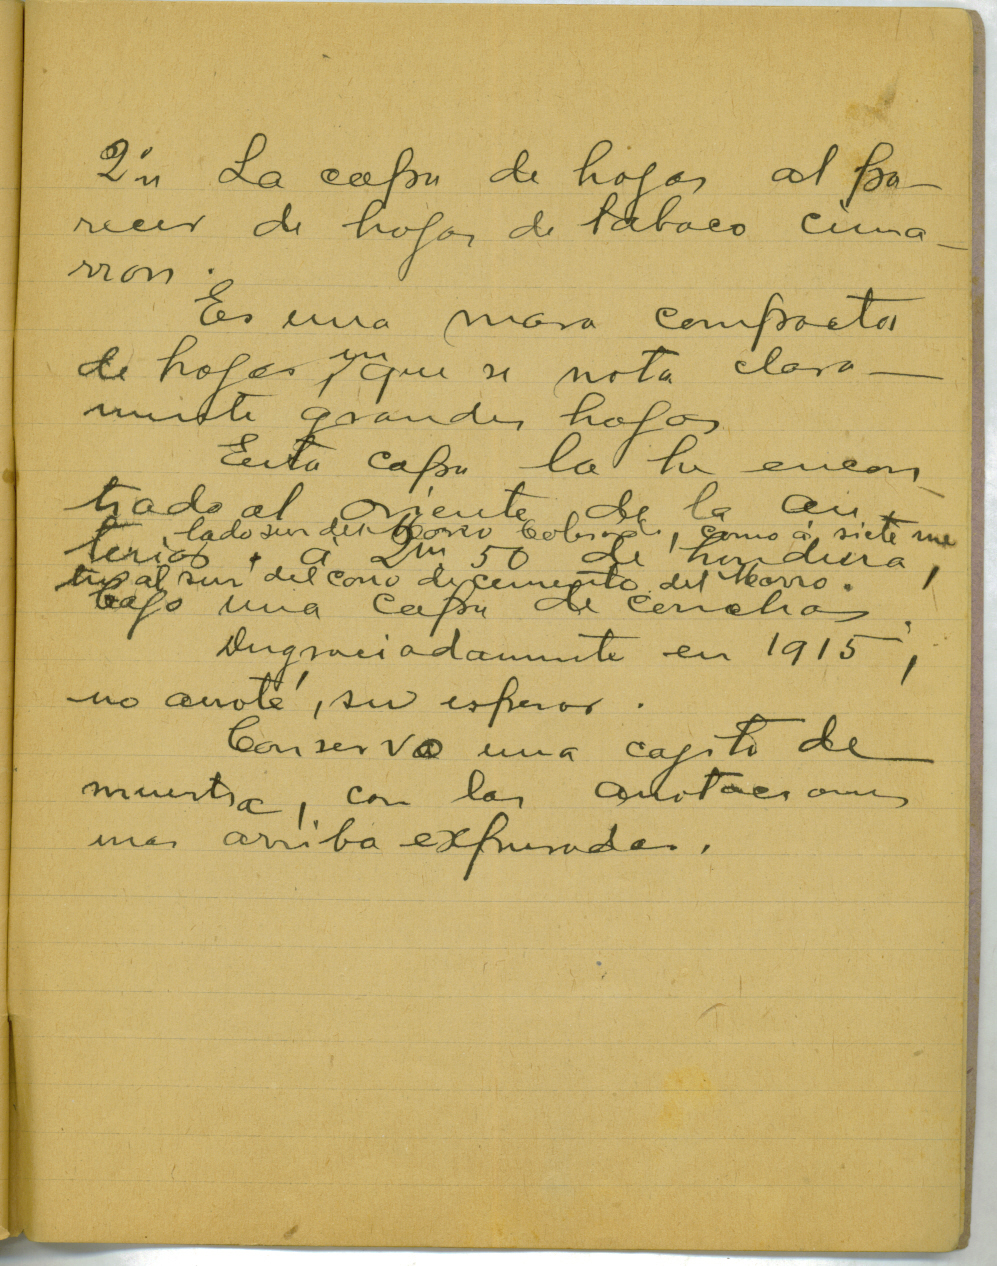 2ºn La capa de hojas al pa-
recer de hojas de tabaco cima-
rron.
Es una masa compacta
de hojas, en que se nota clara-
mente grandes hojas
Esta capa la he encon-
trado al oriente de la an-
lado sur del Morro Colorado, como á siete me
terior. á 2m 50 de hondura,
tros al sur del cono de cemento del Morro.
bajo una capa de conchas.
Desgraciadamente en 1915,
no anoté, su espesor.
Conservo una cajita de
muestra, con las anotaciones
mas arriba expresadas.